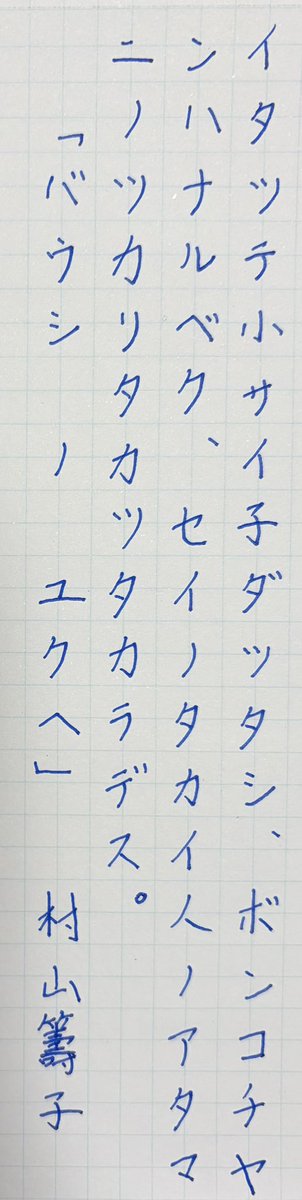 イタツテ小サイ子ダツタシ、ボンコチヤ
ンハナルベク、セイノタカイ人ノアタマ
ニノツカリタカツタカラデス。
「バウシ ノ ユクヘ」 村山籌子